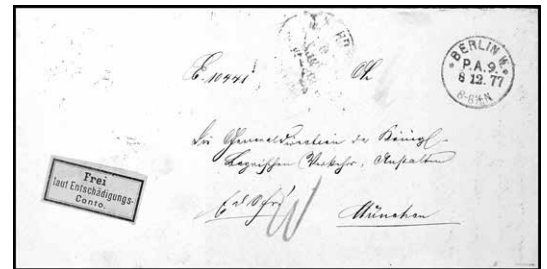 E. 10441
BERLIN W.
P.A.9.
8 12. 77
8-8½N
Die Generaldirection der Königl.
Bayrischen Verkehrs, Anstalten
Frei
laut Entschädigungs-
Conto.
München